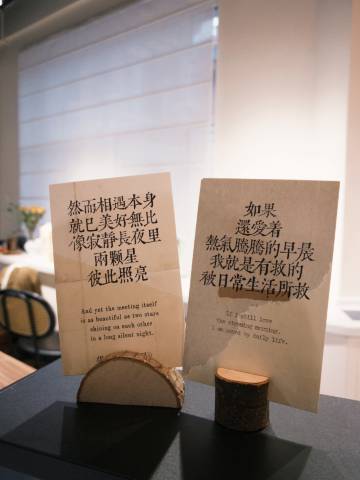 然而相遇本身
就已美好無比
像寂靜長夜里
兩颗星
彼此照亮
And yet the meeting itself
is as beautiful as two stars
shining on each other
in a long silent night.
如果
還愛着
熱氣騰騰的早晨
我就是有救的
被日常生活所救
If I still love
the steaming morning,
I am saved by daily life.